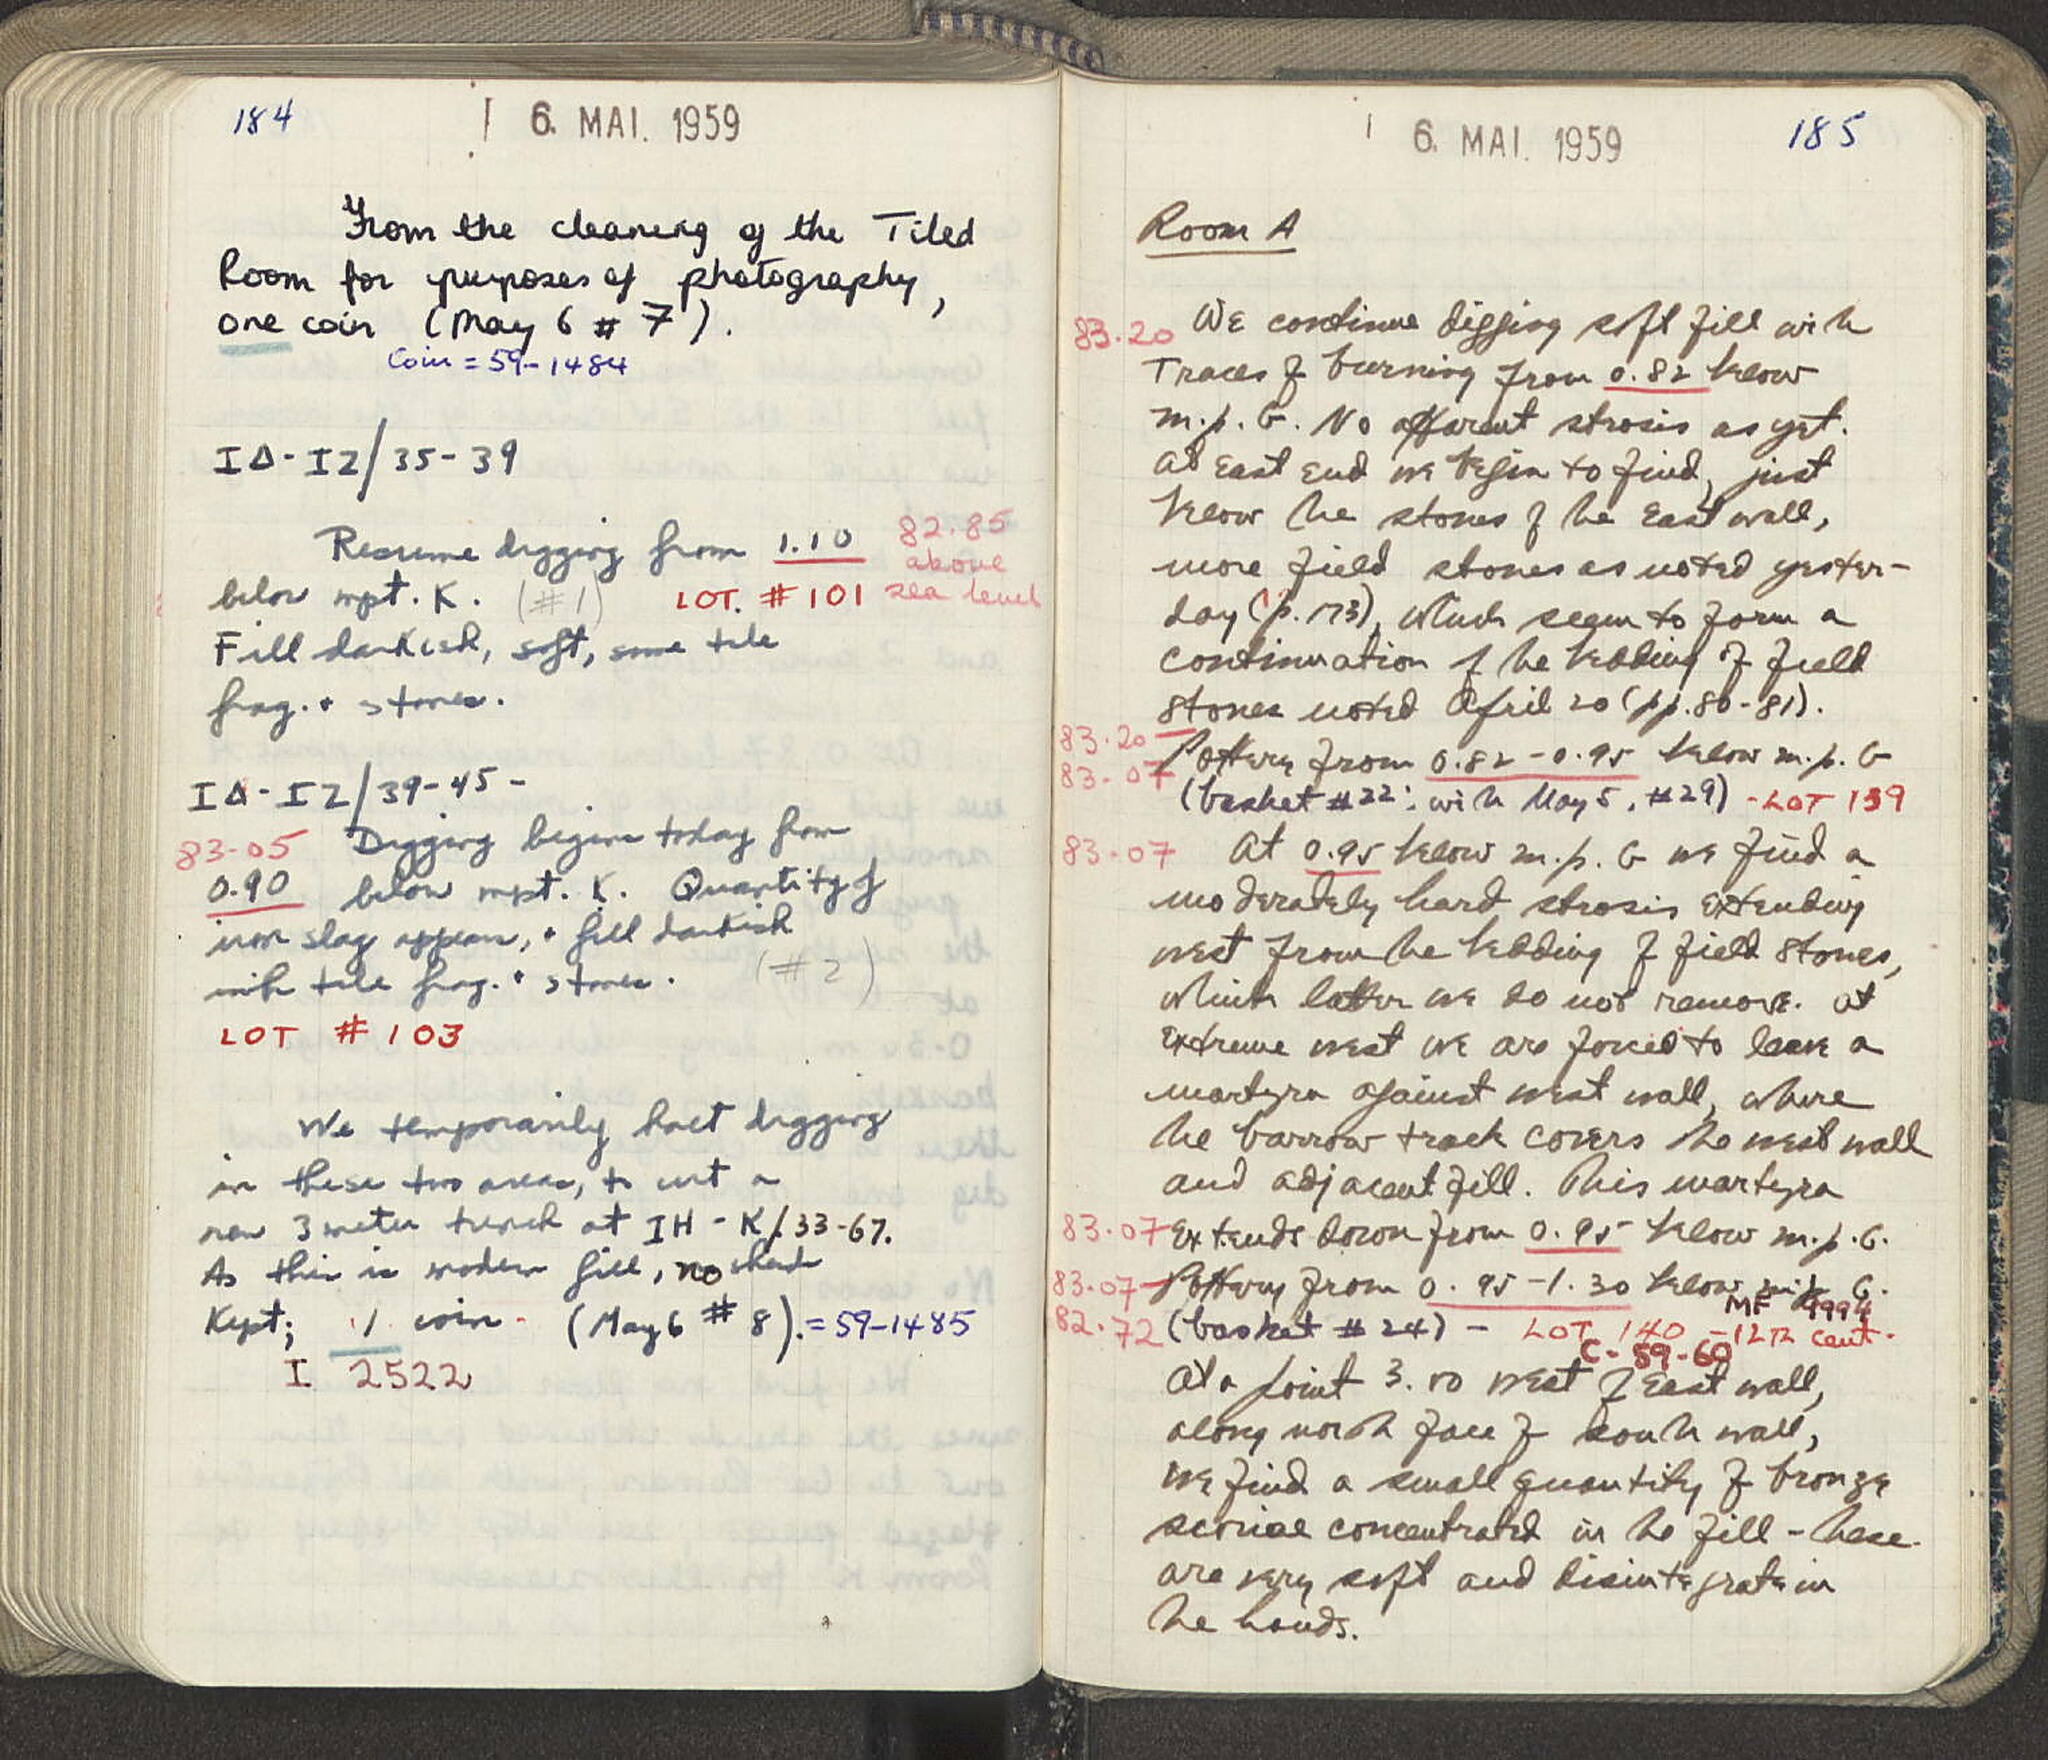 184
6. MAI. 1959
From the cleaning of the Tiled
Room for purposes of photography,
one coin (May 6 # 7).
Coin = 59-1484
IΔ-IZ/35-39
Resume digging from 1.10 82.85
above
below mpt. K. (#1) LOT. #101 sea level
Fill darkish, soft, some tile
frag. + stones.
IΔ-IZ/39-45-
83.05 Digging begins today from
0.90 below mpt. K. Quantity of
iron slag appears, + fill darkish
with tile frag. + stones. (#2)
LOT #103
We temporarily halt digging
in these two areas, to cut a
new 3 meter trench at IH-K/33-67.
As this is modern fill, no sherds
Kept; 1 coin. (May 6 # 8). = 59-1485
I 2522
6. MAI. 1959
185
Room A
83.20 We continue digging soft fill with
traces of burning from 0.82 below
m.p. G. No apparent strosis as yet.
At East End we begin to find, just
below the stones of the East wall,
more field stones as noted yester-
day (p. 173), which seem to form a
continuation of the bedding of field
stones noted April 20 (pp. 80-81).
83.20-
83.07 Pottery from 0.82-0.95 below m.p. G
(basket #22; with May 5, #29) - LOT 139
83.07 At 0.95 below m.p. G we find a
moderately hard strosis extending
west from the bedding of field stones,
which latter we do not remove. At
extreme west we are forced to leave a
martyra against west wall, where
the barrow track covers the west wall
and adjacent fill. This martyra
83.07 Extends down from 0.95 below m.p. G.
83.07- Pottery from 0.95-1.30 below m.p. G.
MF 9994
82.72 (basket #24) - LOT 140 - 12th cent.
C-59-60
At a point 3.00 west of East wall,
along north face of south wall,
we find a small quantity of bronze
scoriae concentrated in the fill - these
are very soft and disintegrate in
the hands.